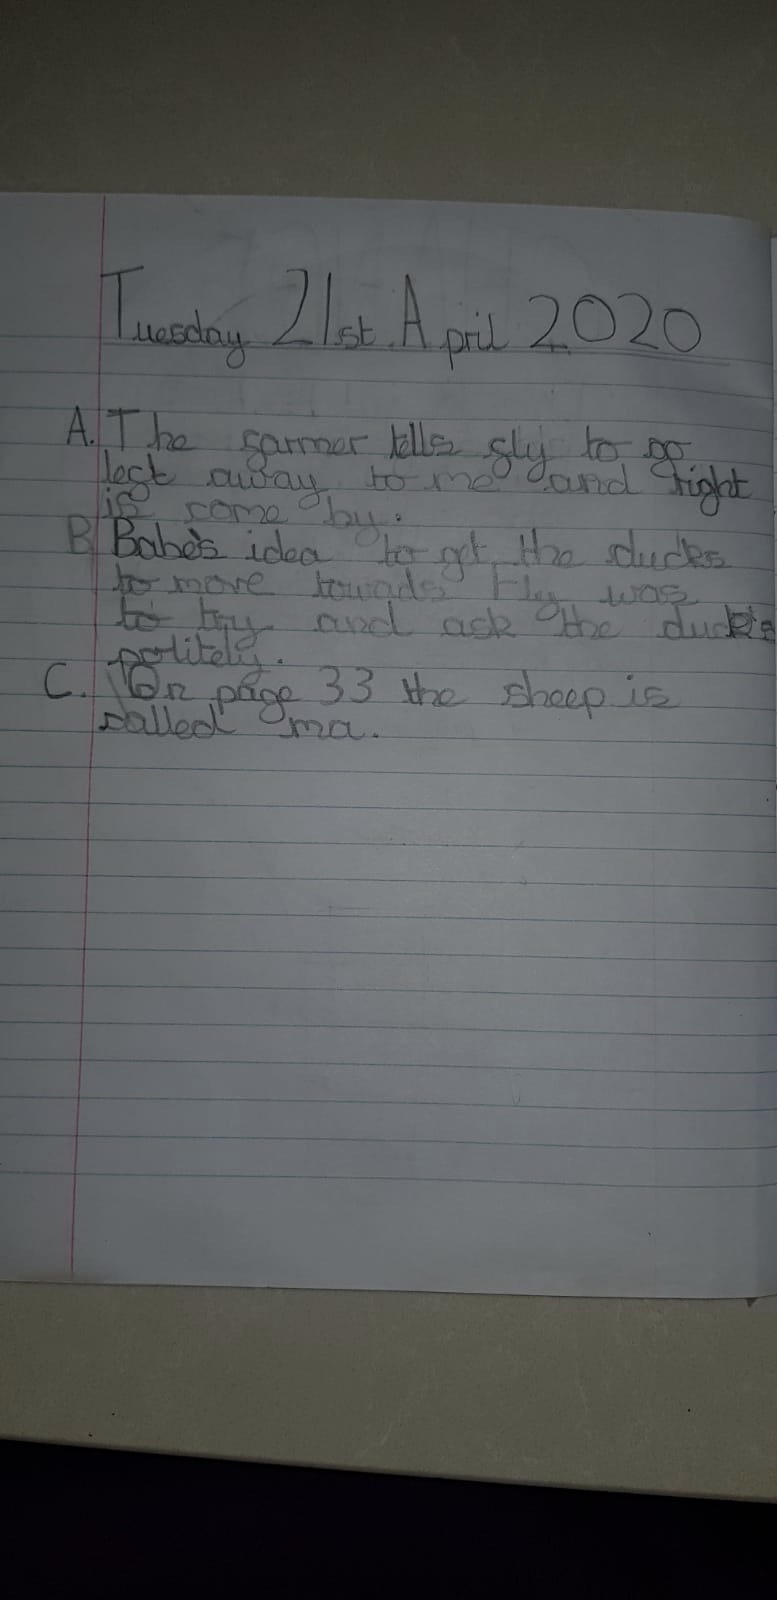 Tuesday 21st April 2020
A. The farmer tells fly to go
left away to me and right
is come by.
B Babe's idea to get the ducks
to move towads Fly was
to try and ask the duck's
politely.
C. On page 33 the sheep is
called ma.